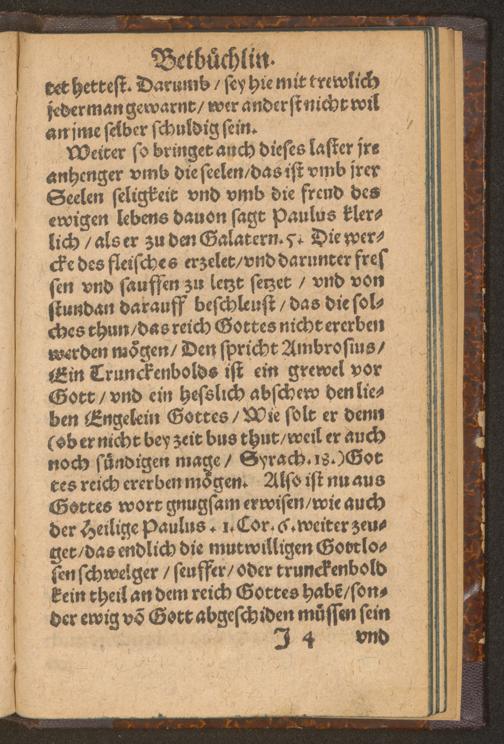 Betbůchlin.
tet hettest. Darumb / sey hie mit trewlich
jederman gewarnt / wer anderst nicht wil
an jme selber schuldig sein.
Weiter so bringet auch dieses laster jre
anhenger vmb die seelen/das ist vmb jrer
Seelen seligkeit vnd vmb die freud des
ewigen lebens dauon sagt Paulus kler⸗
lich / als er zu den Galatern. 5. Die wer⸗
cke des fleisches erzelet/vnd darunter fres
sen vnd sauffen zu letzt setzet / vnd von
stundan darauff beschleust / das die sol⸗
ches thun/das reich Gottes nicht ererben
werden mögen/ Den spricht Ambrosius/
Ein Trunckenbolds ist ein grewel vor
Gott / vnd ein hesslich abschew den lie⸗
ben Engelein Gottes / Wie solt er denn
(ob er nicht bey zeit bus thut/weil er auch
noch sündigen mage / Syrach. 18.) Got
tes reich ererben mögen. Also ist nu aus
Gottes wort gnugsam erwisen/wie auch
der Heilige Paulus . 1. Cor. 6. weiter zeu⸗
get/das endlich die mutwilligen Gottlo⸗
sen schwelger / seuffer/oder trunckenbold
kein theil an dem reich Gottes habē/son⸗
der ewig vō Gott abgeschiden müssen sein
J 4 vnd